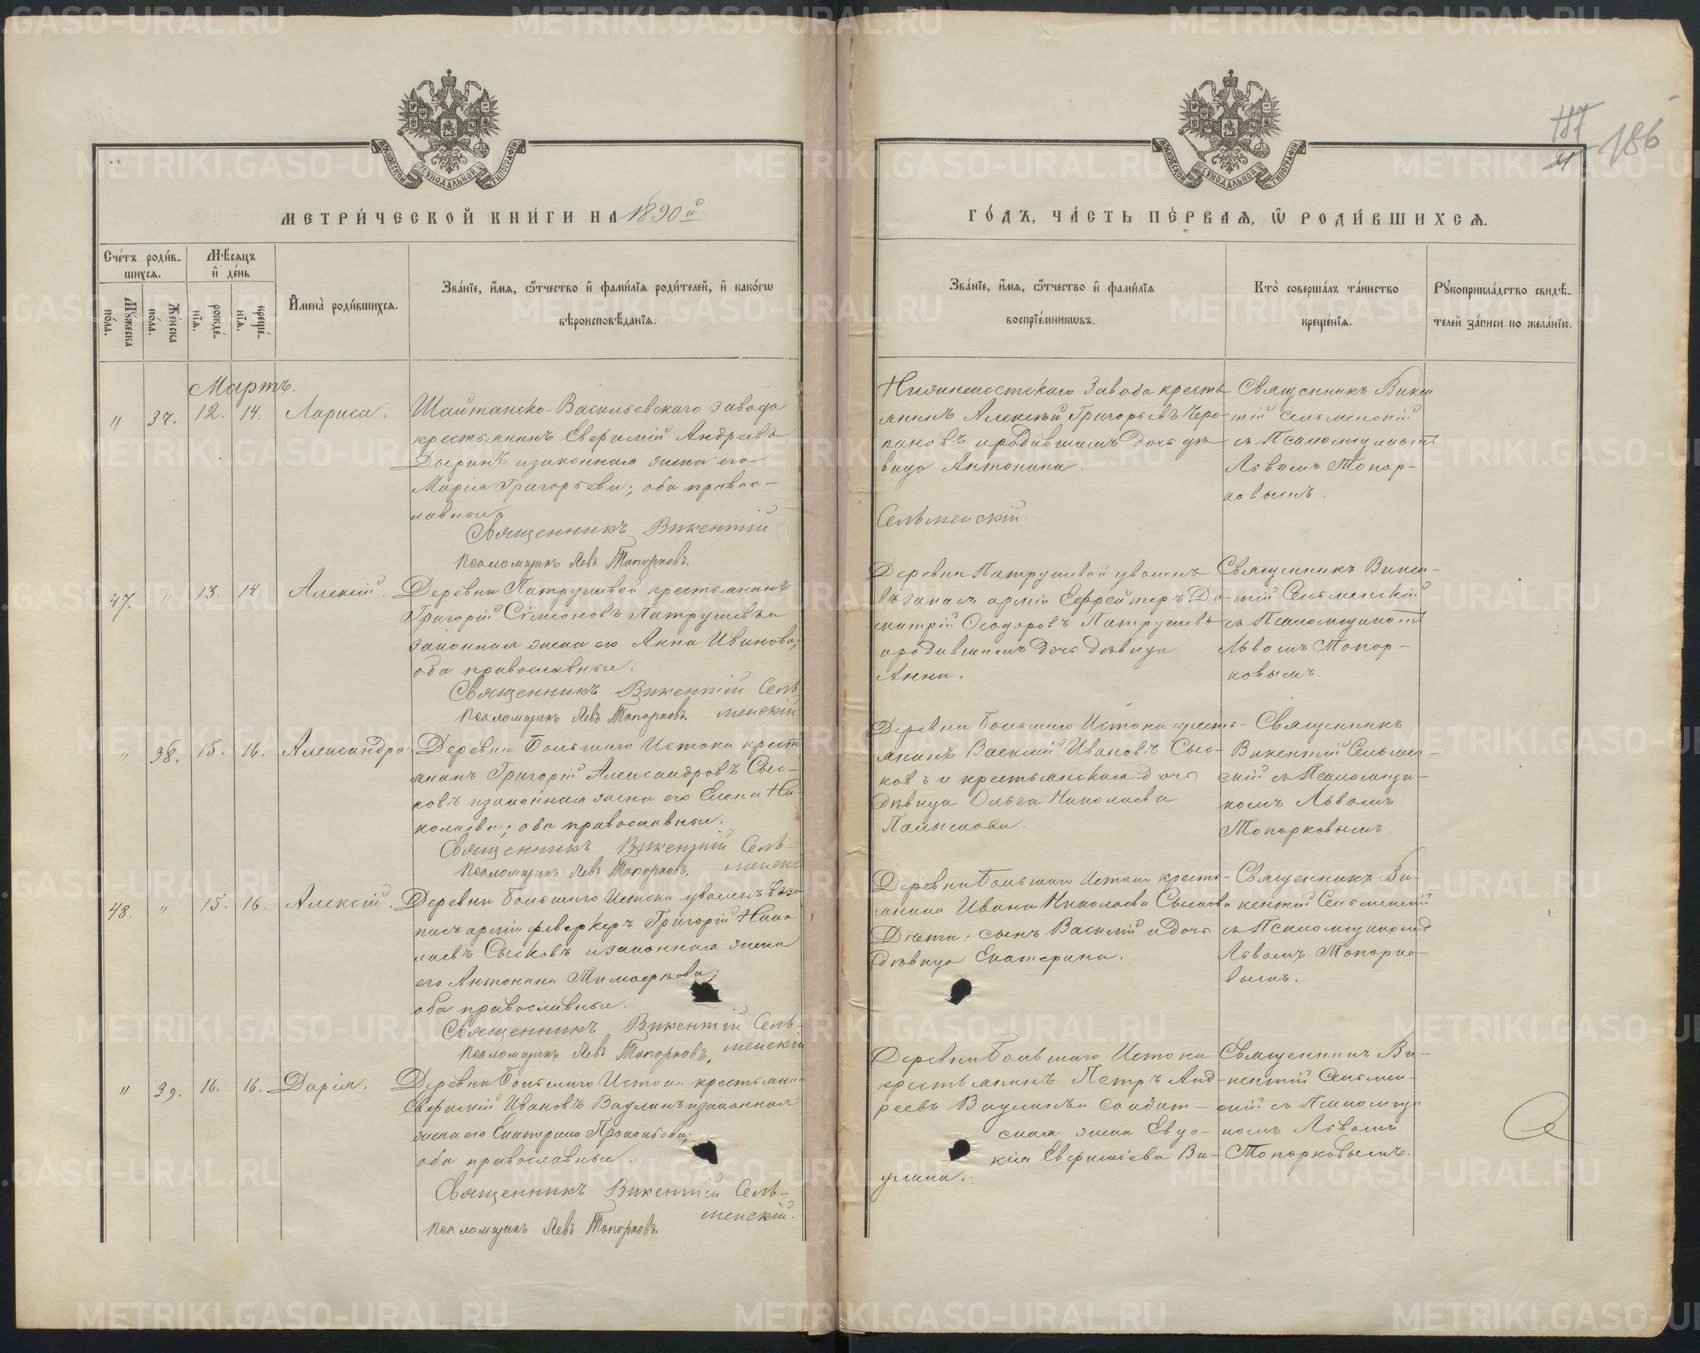 МЕТРИ́ЧЕСКОЙ КНИ́ГИ НА 1890й
ГО́ДЪ, ЧА́СТЬ ПЕ́РВАЯ, Ѿ РОДИ́ВШИХСЯ.
187
21
186
Сче́тъ роди́в-
шихся.
Мѣ́сяцъ
и҆ де́нь
Мꙋ́жеска
по́ла.
Же́нска
по́ла.
рожде́-
нїя.
креще́-
нїя.
И҆мена̀ роди́вшихся.
Зва́нїе, и҆́мя, ѻ҆́тчество и҆ фами́лїя роди́телей, и҆ како́гѡ
вѣроисповѣ́данїя.
Зва́нїе, и҆́мя, ѻ҆́тчество и҆ фами́лїя
воспрїе́мникѡвъ.
Кто̀ соверша́лъ та́инство
креще́нїя.
Рꙋкоприкла́дство свидѣ́-
телей за́писи по жела́нїю.
Мартъ.
" 37. 12. 14. Лариса.
Шайтанско-Васильевскаго завода
крестьянинъ Евфимій Андреевъ
и законная жена его
Марія Григорьева; оба правос-
лавные
Священникъ Викентій
Сельменскій.
Псаломщикъ Левъ Топорковъ.
завода кресть-
янинъ Алексѣй Григорьевъ Чере-
пановъ и родившаяся дочь дѣ-
вица Антонина.
Священникъ Викен-
тій Сельменскій
съ Псаломщикомъ
Львомъ Топор-
ковымъ.
47. " 13. 14. Алексій.
Деревни Патрушевой крестьянинъ
Григорій Сімеоновъ Патрушевъ и
законная жена его Анна Иванова;
оба православные.
Священникъ Викентій Сель-
менскій
Псаломщикъ Левъ Топорковъ.
Деревни Патрушевой уволенъ
въ запасъ арміи Ефрейторъ Ди-
митрій Ѳеодоровъ Патрушевъ
дочь дѣвица
Анна.
Священникъ Викен-
тій Сельменскій
съ Псаломщикомъ
Львомъ Топор-
ковымъ.
" 38. 15. 16. Александра
Деревни Большаго Истока кресть-
янинъ Григорій Александровъ Сыс-
ковъ и законная жена его Елена Ни-
колаева; оба православные.
Священникъ Викентій Сель-
менскій
Псаломщикъ Левъ Топорковъ.
Деревни Большаго Истока кресть-
янинъ Василій Ивановъ Сыс-
ковъ и крестьянская дочь
дѣвица Ольга Николаева
Священникъ
Викентій Сельмен-
скій съ Псаломщи-
комъ Львомъ
Топорковымъ.
48. " 15. 16. Алексій.
Деревни Большаго Истока уволенъ въ за-
пасъ арміи Григорій Нико-
лаевъ Сысковъ и законная жена
его Антонина Тимоѳеева;
оба православные.
Священникъ Викентій Сель-
менскій
Псаломщикъ Левъ Топорковъ.
Деревни Большаго Истока кресть-
янина Ивана Николаева Сыскова
дѣти: сынъ Василій и дочь
дѣвица Екатерина.
Священникъ Ви-
кентій Сельменскій
съ Псаломщикомъ
Львомъ Топорко-
вымъ.
" 39. 16. 16. Дарія.
Деревни Большаго Истока крестьянинъ
Евфимій Ивановъ Ваулинъ и законная
жена его Екатерина Прокопьева;
оба православные.
Священникъ Викентій Сель-
менскій.
Псаломщикъ Левъ Топорковъ.
Деревни Большаго Истока
крестьянинъ Петръ Анд-
реевъ Ваулинъ и солдат-
ская жена Евдо-
кія Евфиміева Ва-
улина.
Священникъ Ви-
кентій Сельмен-
скій съ Псаломщи-
комъ Львомъ
Топорковымъ.
METRIKI.GASO-URAL.RU